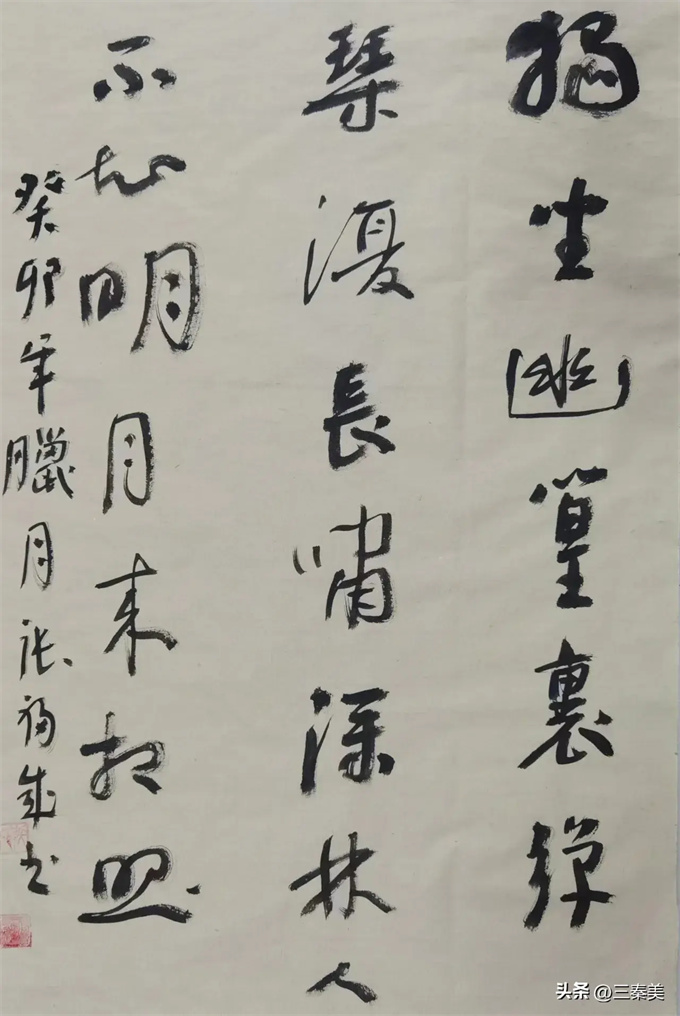 獨坐幽篁裏彈
琴復長嘯深林人
不知明月来相照
癸卯年臘月张福成书
头条 @三秦美